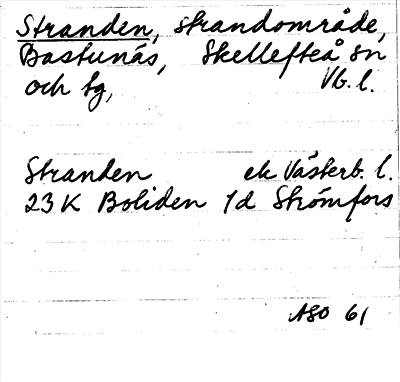 Stranden, strandområde,
Bastunäs, Skellefteå sn
och tg, Vb. l.
Stranden ek Västerb. l.
23K Boliden 1d Strömfors
ASO 61